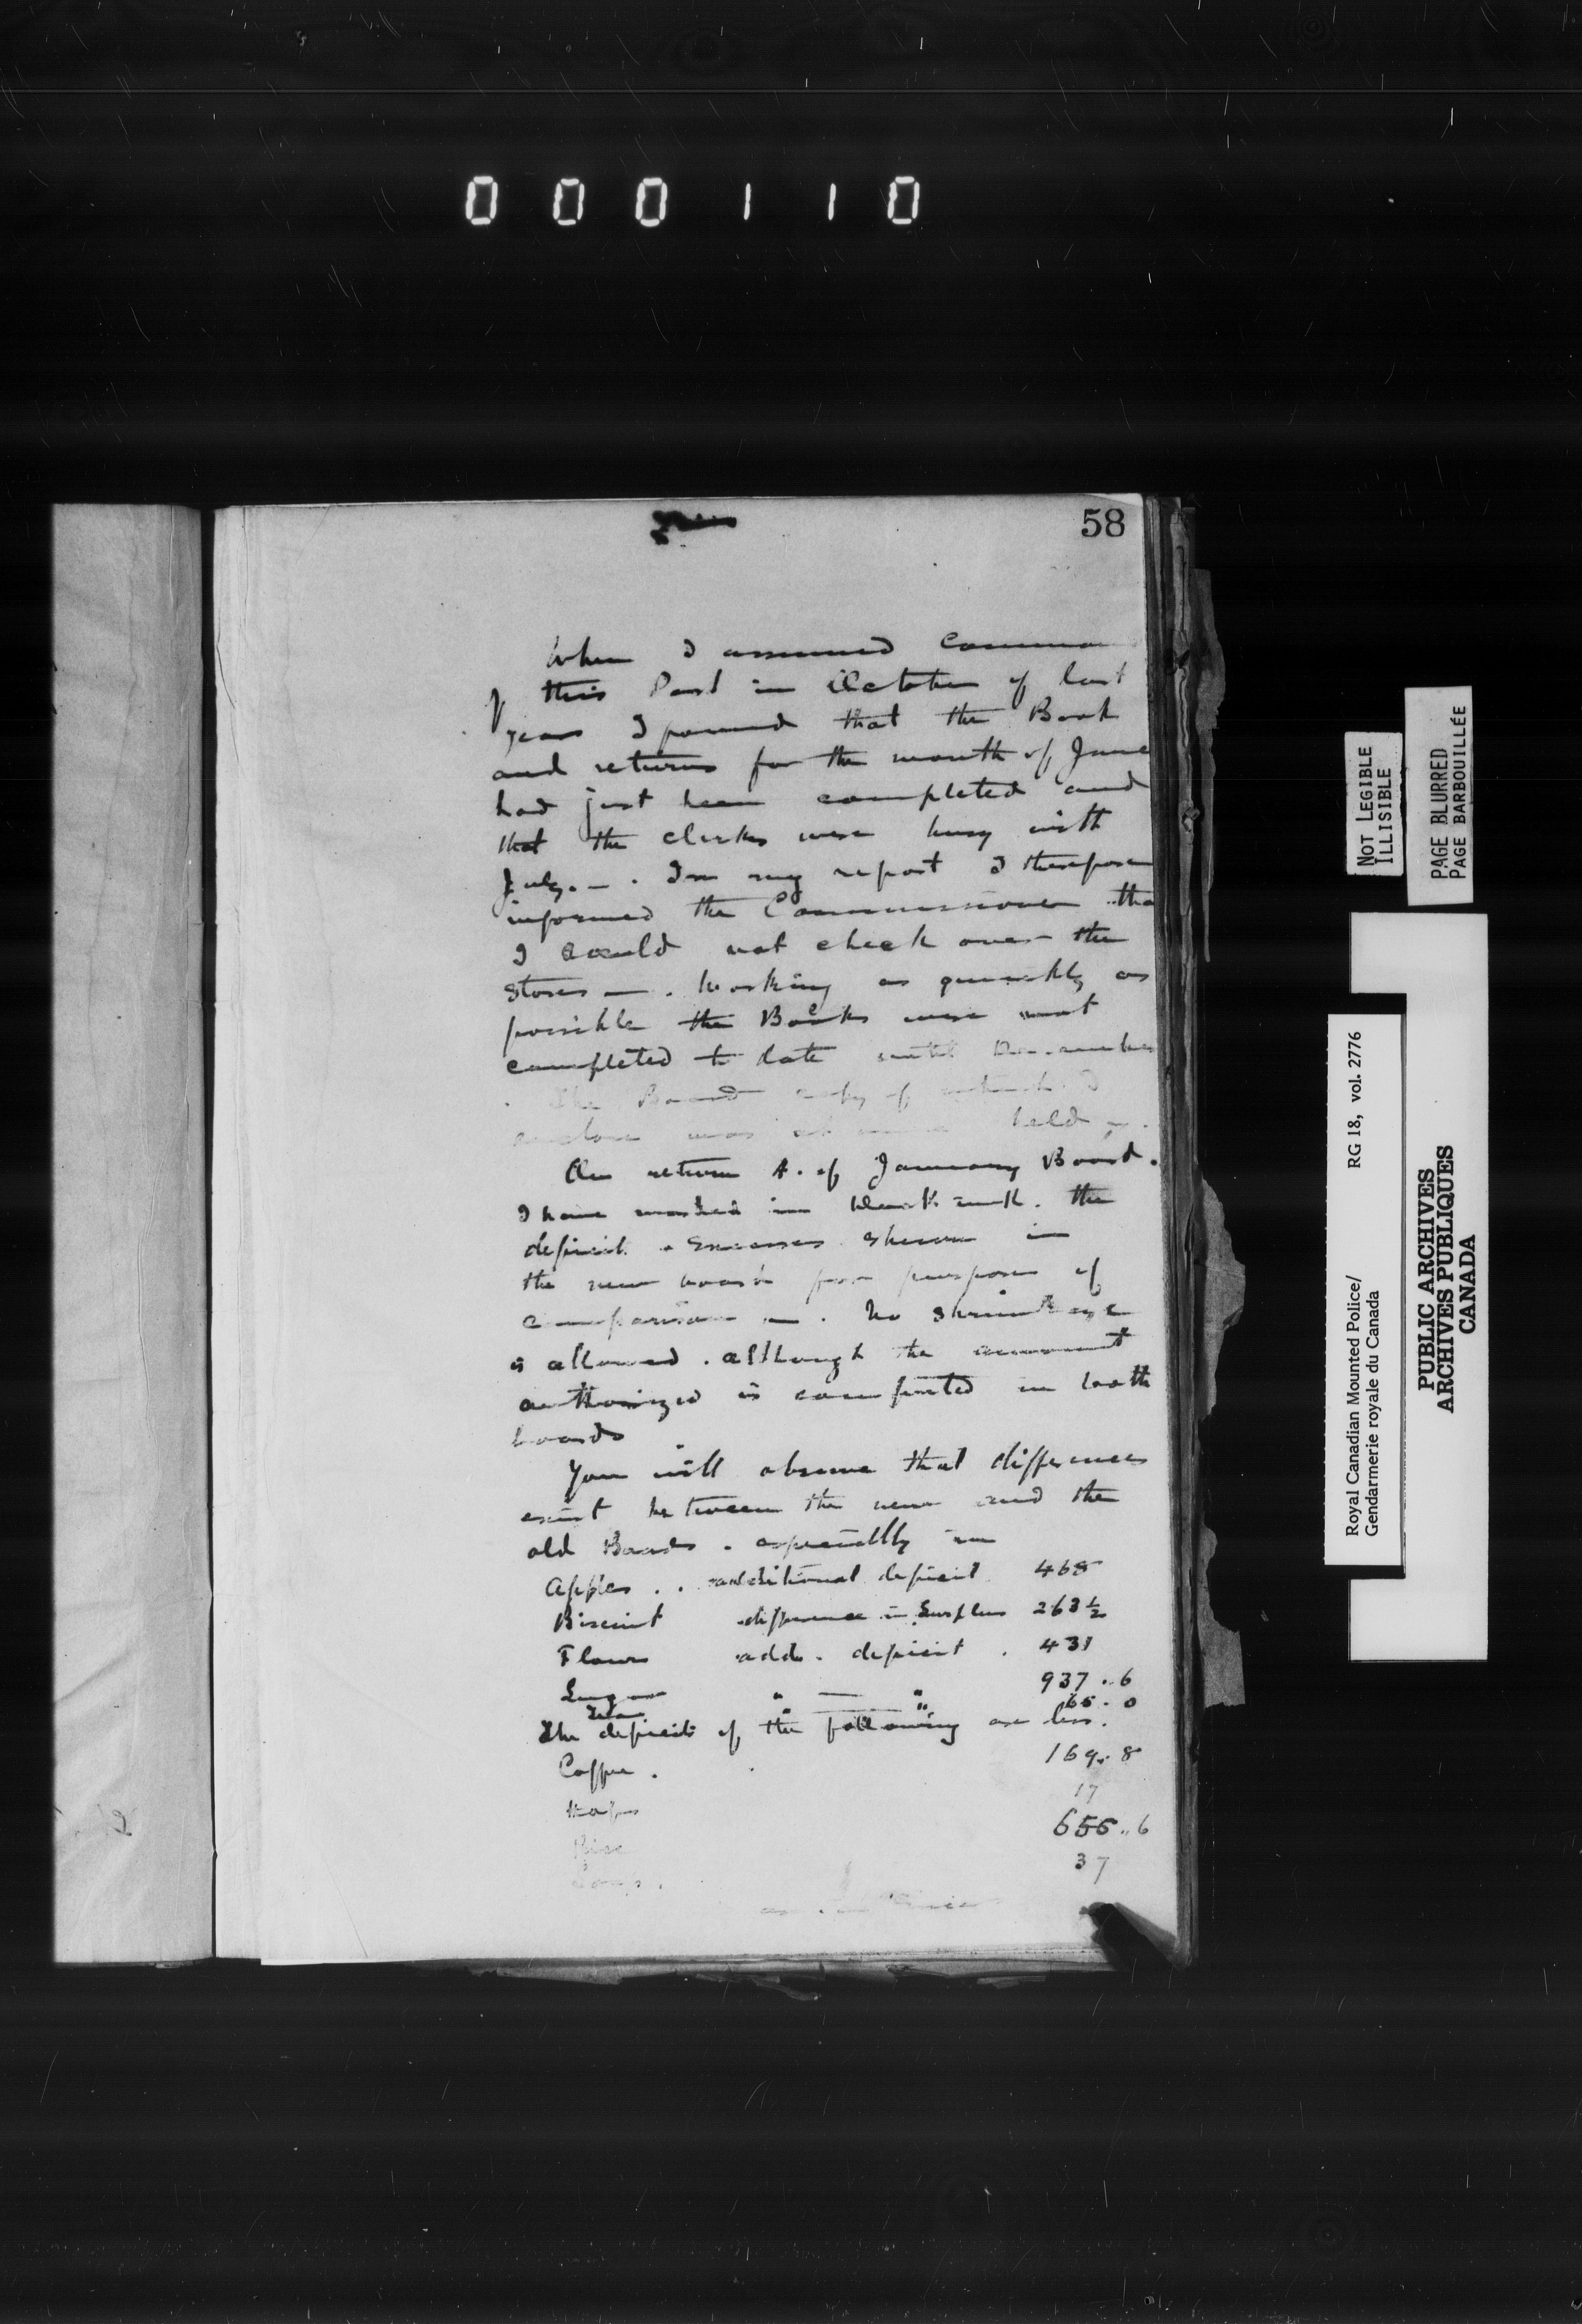 000110
58
When I assumed comman
of this Post in October of last
year I found that the Book
and returns for the month of June
had just been completed and
that the clerks were busy with
July. — . In my report I therefore
informed the Commissioner tha
I could not check over the
stores — . Working as quickly as
possible the Books were not
completed to date until December
. The Board copy of which I
enclose was at once held
On return A. of January Board.
I have marked in black ink. the
deficit & excesses shewn in
the new board for purpose of
comparison — . No shrinkage
is allowed . although the amount
authorized is computed in both
boards
You will observe that differences
exist between the new and the
old Boards . especially in
Apples . . additional deficit 468
Biscuit difference in Surplus 263 ½
Flour add. deficit . 431
Sugar " — " 937 .. 6
Tea " " 65 . 0
The deficits of the following are less.
Coffee . 169 .. 8
Hops 17
Rice 656 .. 6
Soap . 37
NOT LEGIBLE
ILLISIBLE
PAGE BLURRED
PAGE BARBOUILLÉE
Royal Canadian Mounted Police/ RG 18, vol. 2776
Gendarmerie royale du Canada
PUBLIC ARCHIVES
ARCHIVES PUBLIQUES
CANADA